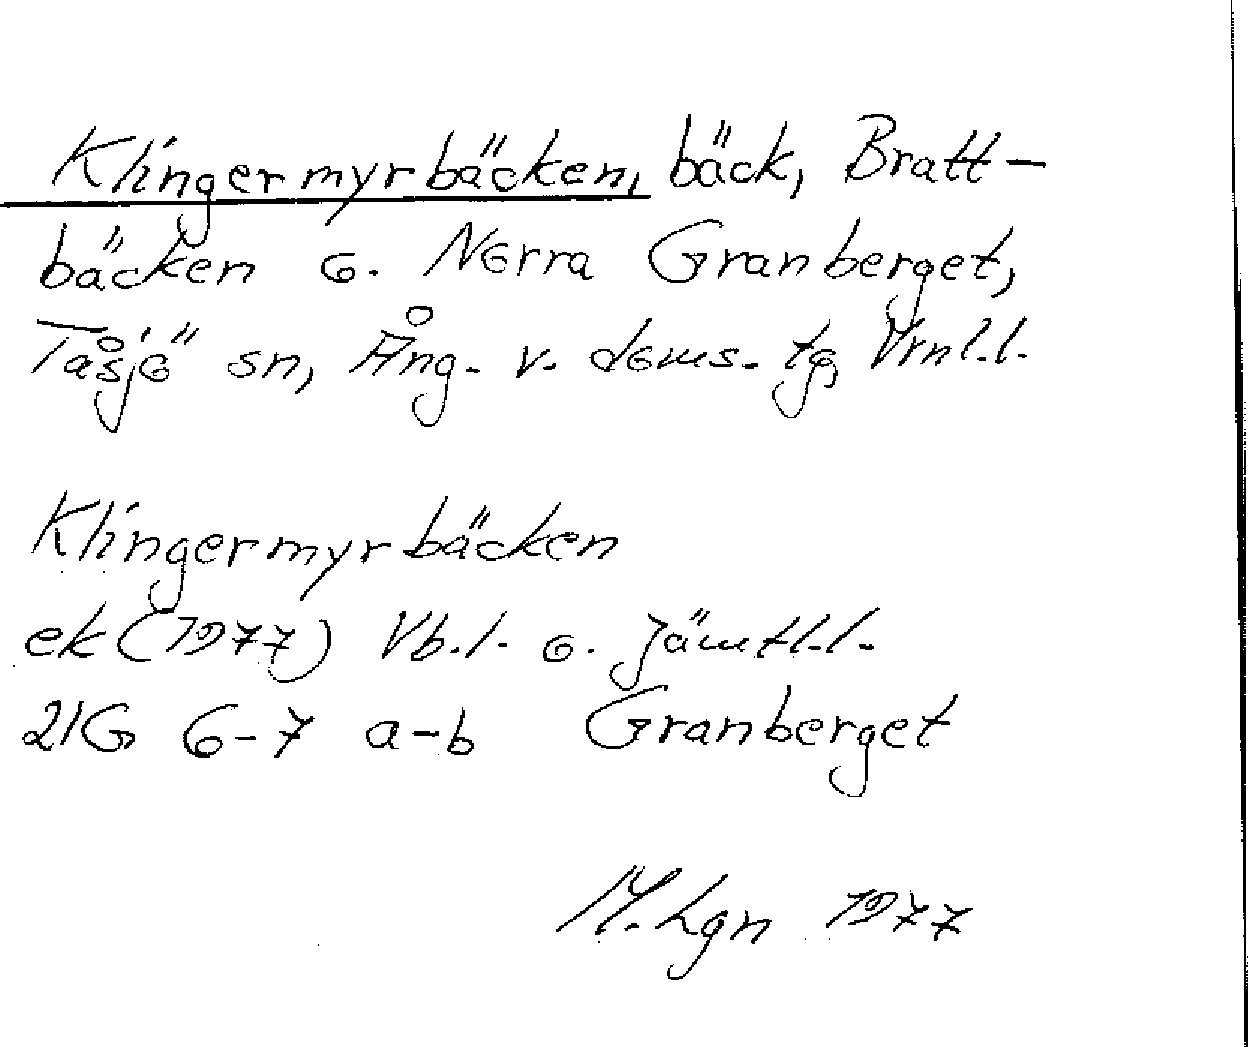 Klingermyrbäcken, bäck, Bratt-
bäcken o. Norra Granberget,
Tåsjö sn, Ång. v. doms. tg, Vrnl.l.
Klingermyrbäcken
ek (1977) Vb.l. o. Jämtl.l.
21G 6-7 a-b Granberget
M. Lgn 1977